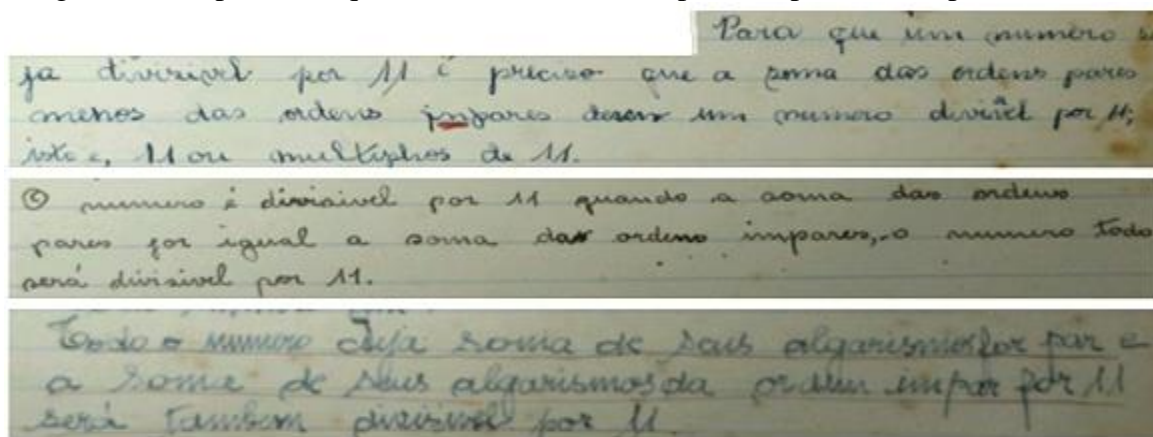 Para que um numero se
ja divisivel por 11 é preciso que a soma das ordens pares
menos das ordens impares deem um numero divisivel por 11;
isto e, 11 ou multiplos de 11.
O numero é divisivel por 11 quando a soma das ordens
pares for igual a soma das ordens impares, o numero todo
será divisivel por 11.
Todo o numero cuja soma de seus algarismos for par e
a soma de seus algarismos da ordem impar for 11
será tambem divisivel por 11.